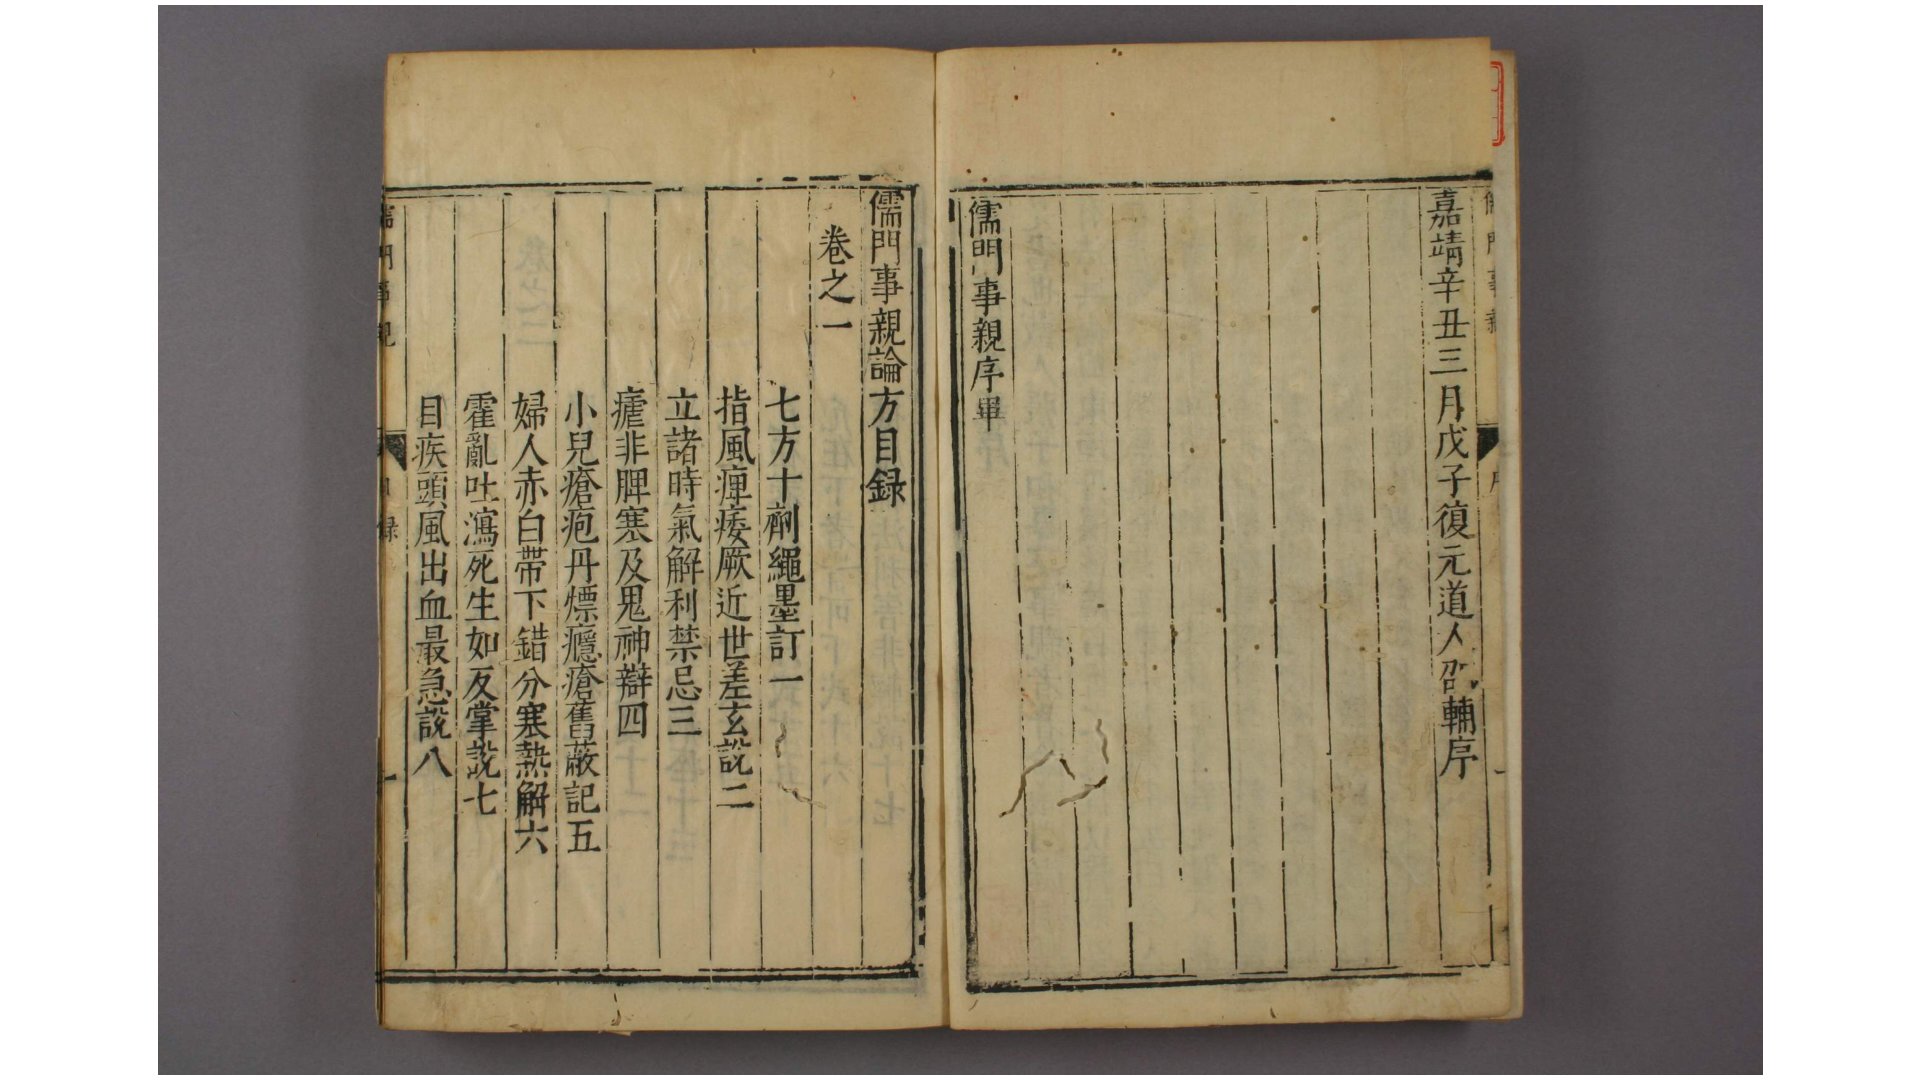 嘉靖辛丑三月戊子復元道人邵輔序
儒門事親序畢
儒門事親論方目録
卷之一
七方十劑繩墨訂一
指風痺痿厥近世差玄說二
立諸時氣解利禁忌三
瘧非脾寒及鬼神辯四
小兒瘡疱丹熛癮瘡舊蔽記五
婦人赤白帶下錯分寒熱解六
霍亂吐瀉死生如反掌說七
目疾頭風出血最急說八